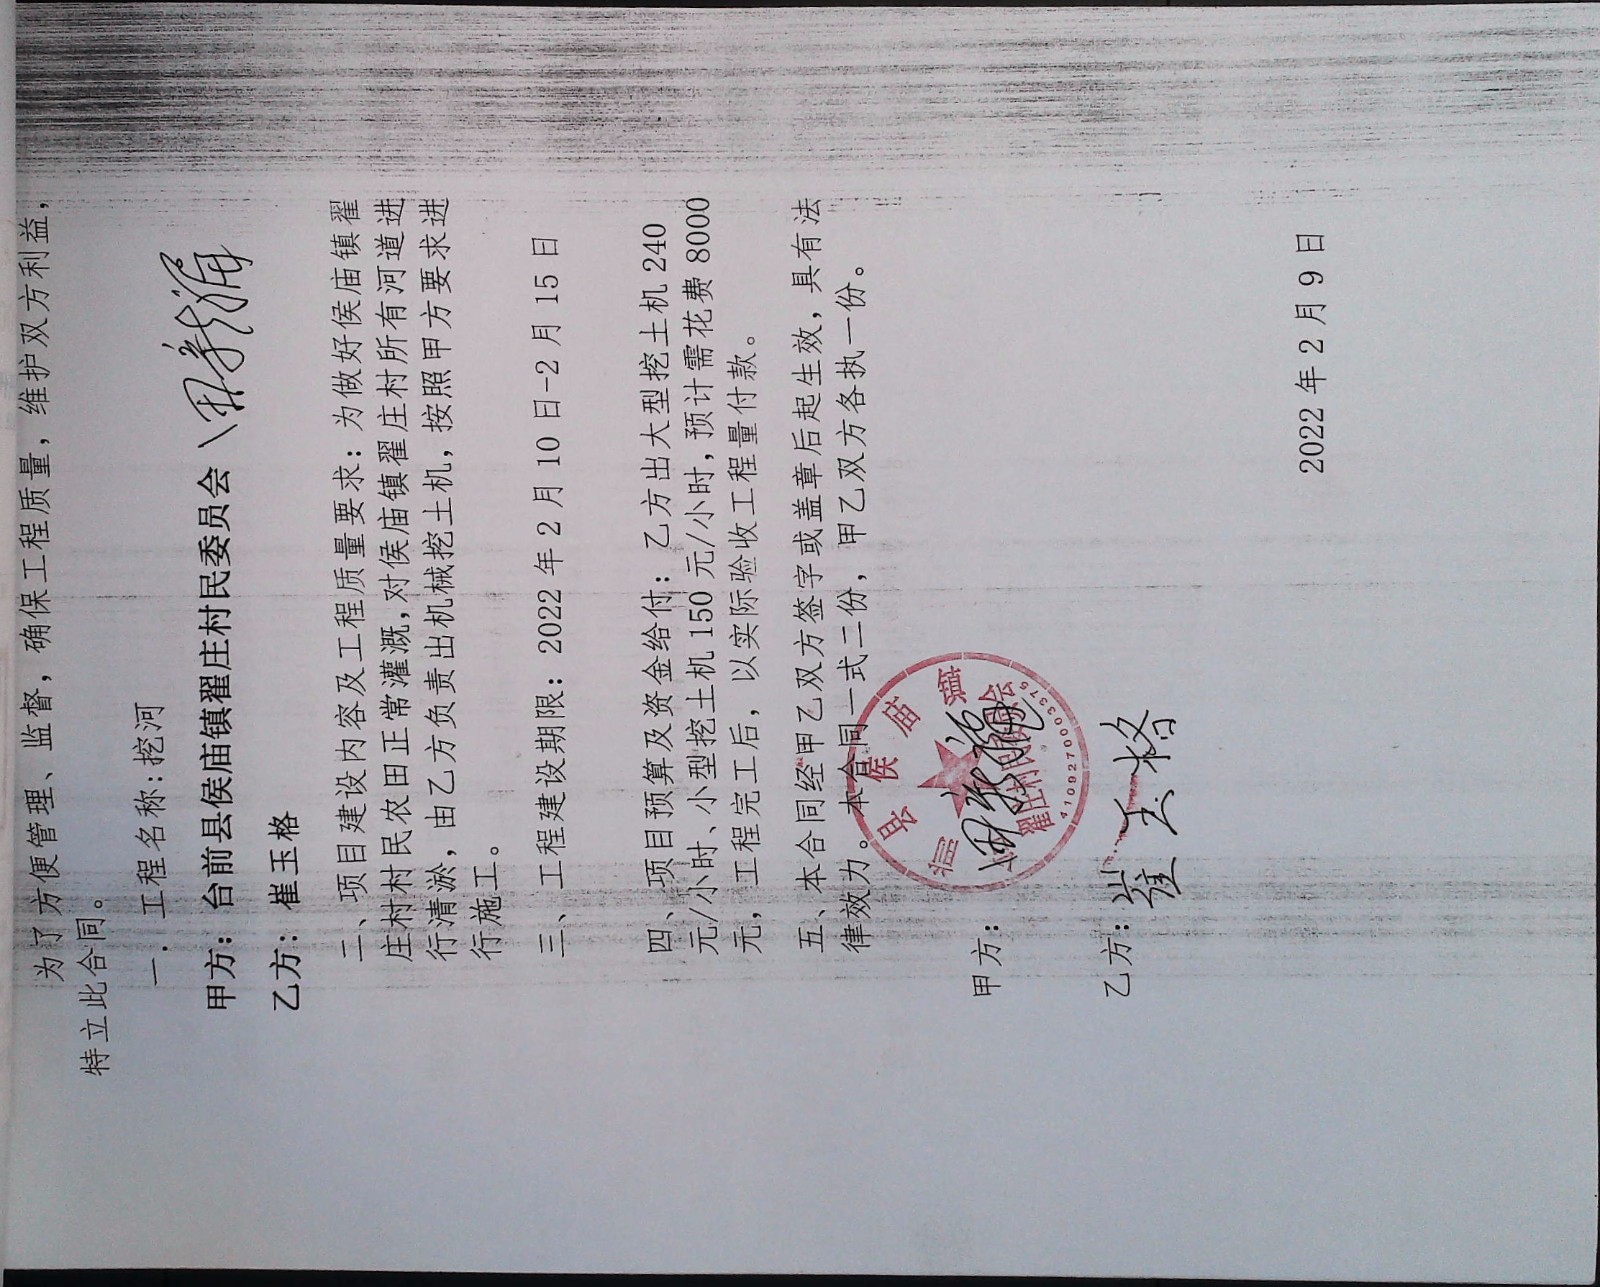 为了方便管理、监督，确保工程质量，维护双方利益，
特立此合同。
一．工程名称:挖河
甲方：台前县侯庙镇翟庄村民委员会
乙方：崔玉格
二、项目建设内容及工程质量要求：为做好侯庙镇翟
庄村村民农田正常灌溉,对侯庙镇翟庄村所有河道进
行清淤，由乙方负责出机械挖土机，按照甲方要求进
行施工。
三、工程建设期限：2022 年 2 月 10 日-2 月 15 日
四、项目预算及资金给付：乙方出大型挖土机 240
元/小时、小型挖土机 150 元/小时,预计需花费 8000
元，工程完工后，以实际验收工程量付款。
五、本合同经甲乙双方签字或盖章后起生效，具有法
律效力。本合同一式二份，甲乙双方各执一份。
县侯庙镇
翟庄村民委员会
4109270003575
甲方：
乙方：崔玉格
2022 年 2 月 9 日